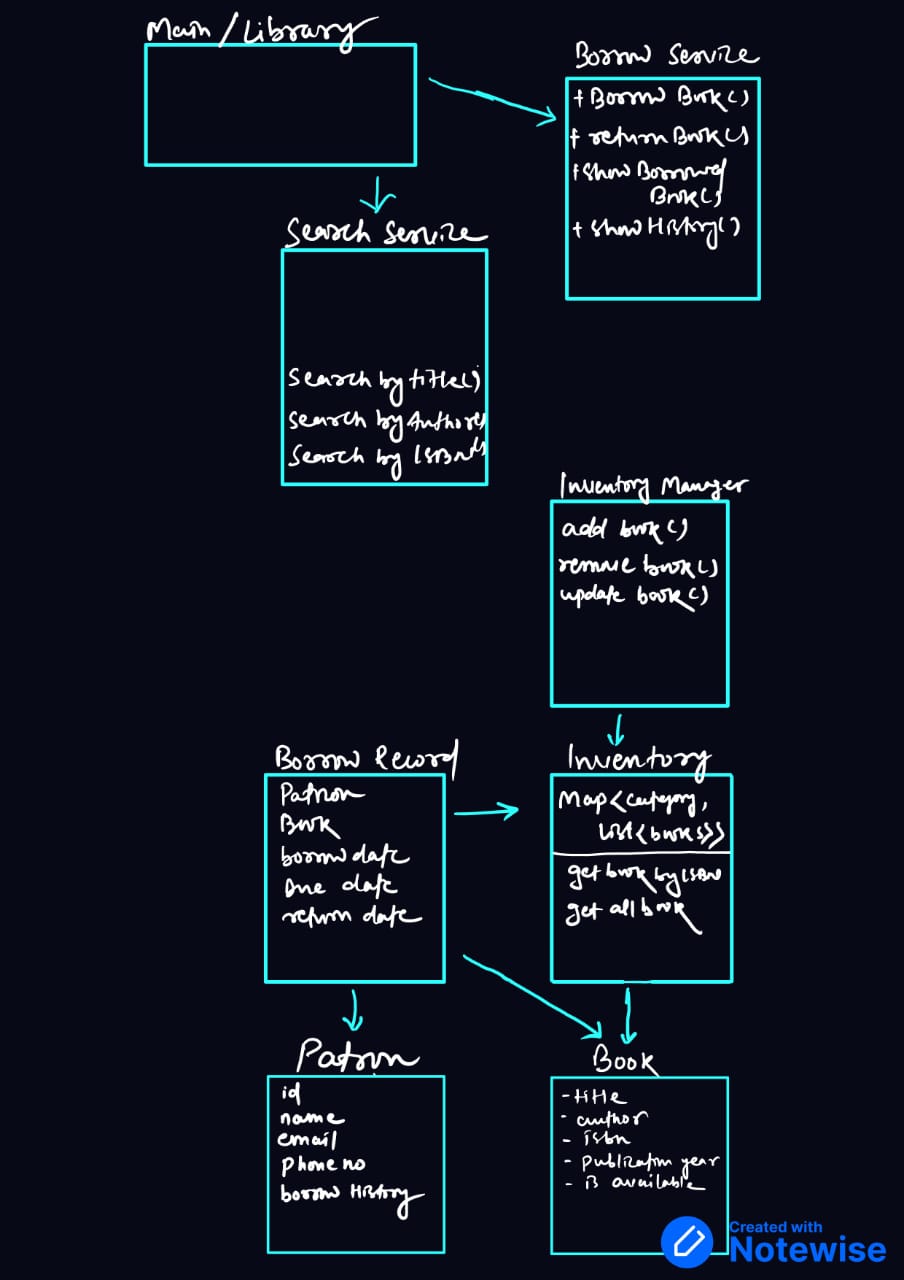 Main / Library
Borrow Service
+ Borrow Book()
+ return Book()
+ show Borrowed
Book()
+ show History()
Search Service
Search by title()
Search by Author()
Search by ISBN()
Inventory Manager
add book()
remove book()
update book()
Borrow Record
Patron
Book
borrow date
Due date
return date
Inventory
Map<category,
List<books>>
get book by ISBN
get all book
Patron
id
name
email
phone no
borrow History
Book
- title
- author
- isbn
- publication year
- is available
Created with
Notewise